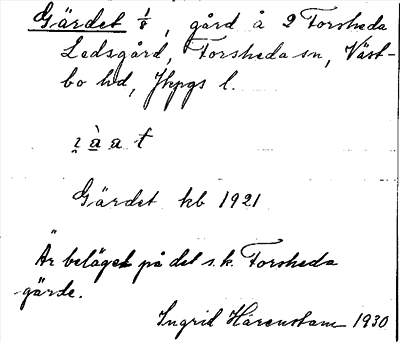 Gärdet 1/8, gård å 2 Forsheda
Ledsgård, Forsheda sn, Väst-
bo hd, Jkpgs l.
Gärdet kb 1921
Är beläget på det s.k. Forsheda
gärde.
Ingrid Härenstam 1930